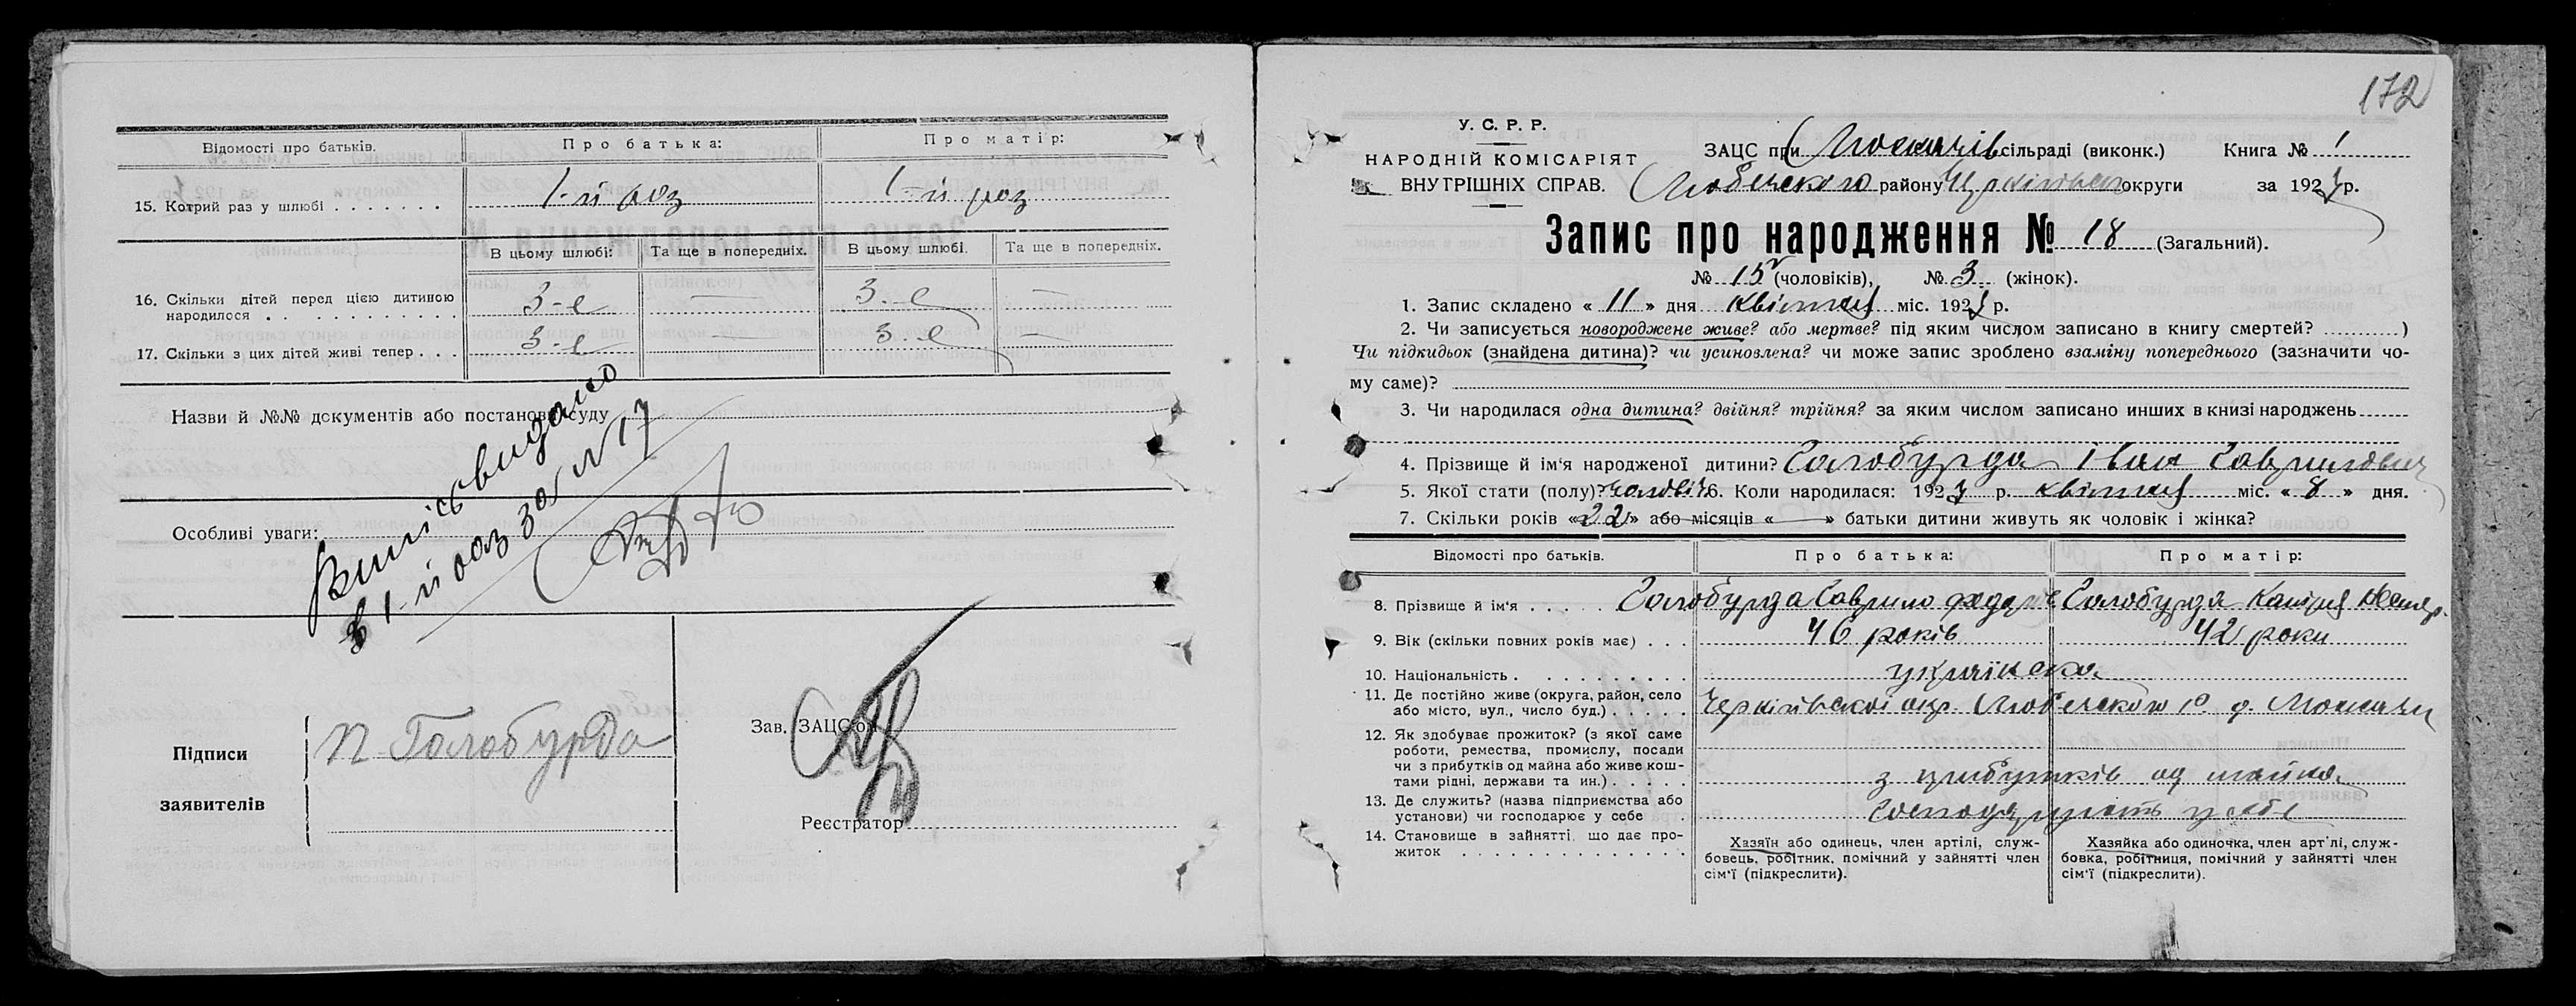 Відомості про батьків. Про батька: Про матір:
15. Котрий раз у шлюбі . . . . . . . 1-й раз 1-й раз
В цьому шлюбі: Та ще в попередніх. В цьому шлюбі. Та ще в попередніх.
16. Скільки дітей перед цією дитиною
народилося . . . . . . . . . . . 3-є — 3-є —
17. Скільки з цих дітей живі тепер . . . 3-є — 3-є —
Назви й №№ документів або постанови суду
Особливі уваги:
Випісь видано
в 1-й раз за N 17
Підписи
заявителів
П Голобурда
Зав. ЗАЦС'ом
Реєстратор
172
У. С. Р. Р.
НАРОДНІЙ КОМІСАРІЯТ
ВНУТРІШНІХ СПРАВ.
ЗАЦС при сільраді (виконк.) Книга № 1
району округи за 1927 р.
Запис про народження № 18 (Загальний).
№ 15 (чоловіків), № 3 (жінок).
1. Запис складено « 11 » дня квітня міс. 1927 р.
2. Чи записується новороджене живе? або мертве? під яким числом записано в книгу смертей? ............)
Чи підкидьок (знайдена дитина)? чи усиновлена? чи може запис зроблено взаміну попереднього (зазначити чо-
му саме)?
3. Чи народилася одна дитина? двійня? трійня? за яким числом записано инших в книзі народжень
4. Прізвище й ім'я народженої дитини? Голобурда Іван Гаврилович
5. Якої стати (полу)? чоловіч. 6. Коли народилася: 1927 р. квітня міс. « 8 » дня.
7. Скільки років « 22 » або місяців « — » батьки дитини живуть як чоловік і жінка?
Відомості про батьків. Про батька: Про матір:
8. Прізвище й ім'я . . . . . Голобурда Гаврило Голобурда
9. Вік (скільки повних років має) . . . 46 років 42 роки
10. Національність . . . . . . . . . українська
11. Де постійно живе (округа, район, село
або місто, вул., число буд.) . . . . . Чернігівської окр.
12. Як здобуває прожиток? (з якої саме
роботи, ремества, промислу, посади
чи з прибутків од майна або живе кош-
тами рідні, держави та ин.) . . . . . з прибутків од майна
13. Де служить? (назва підприємства або
установи) чи господарює у себе . Господарюють у себе
14. Становище в зайнятті, що дає про-
житок . . . . . . . . . . . . . .
Хазяїн або одинець, член артілі, служ-
бовець, робітник, помічний у зайнятті член
сім'ї (підкреслити).
Хазяйка або одиночка, член арт'лі, служ-
бовка, робітниця, помічний у зайнятті член
сім'ї (підкреслити).